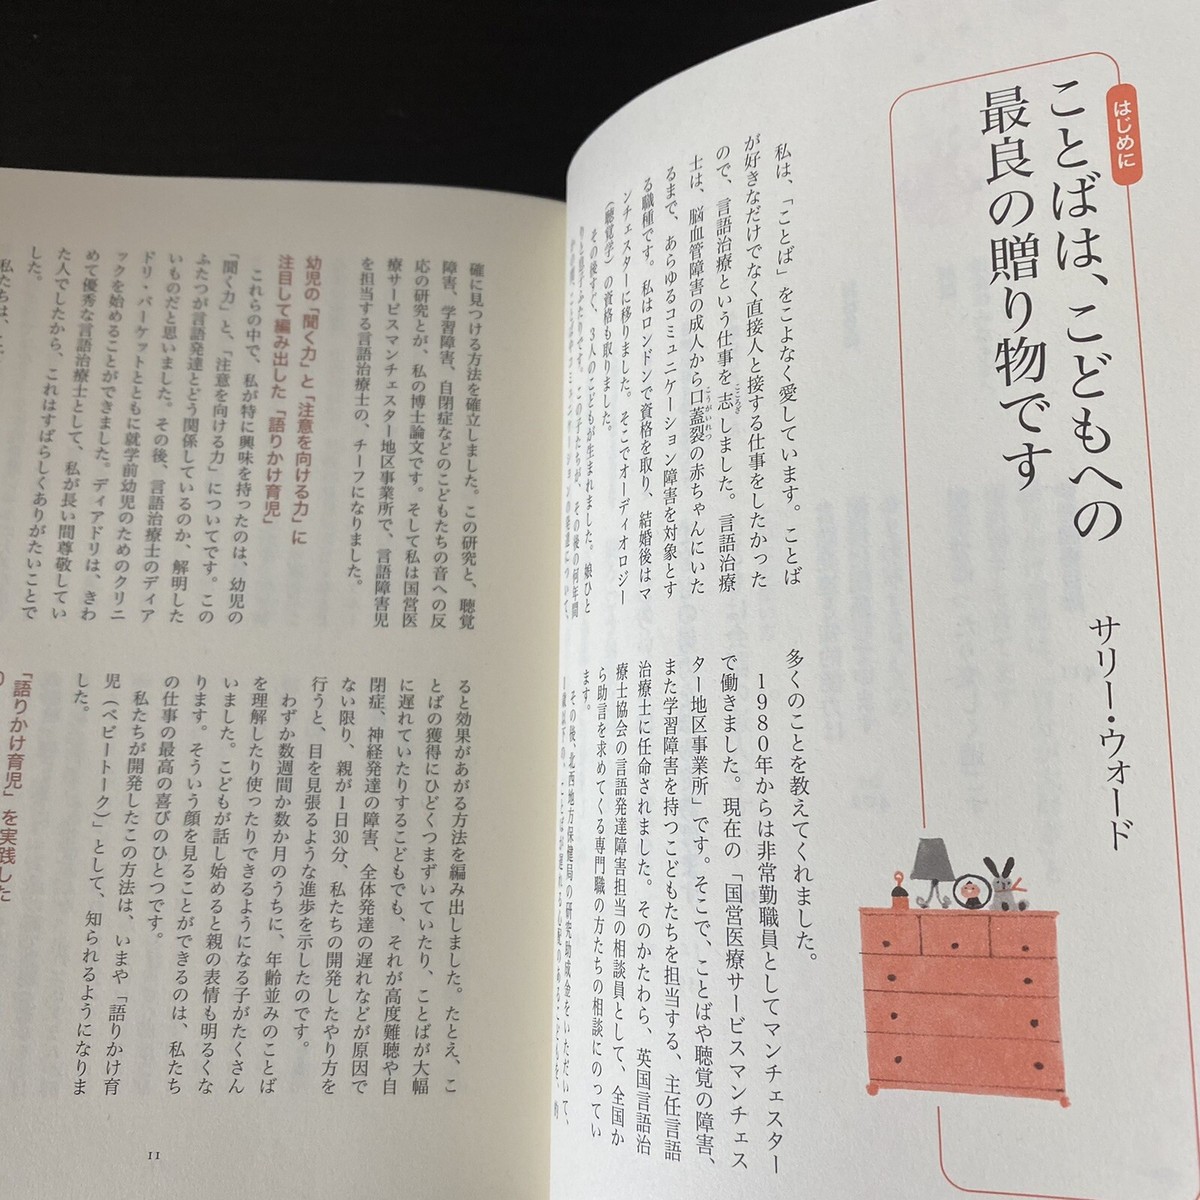 はじめに
ことばは、こどもへの
最良の贈り物です
サリー・ウォード
私は、「ことば」をこよなく愛しています。ことば
が好きなだけでなく直接人と接する仕事をしたかった
ので、言語治療という仕事を志しました。言語治療
こころざ
士は、脳血管障害の成人から口蓋裂の赤ちゃんにいた
こうがいれつ
るまで、あらゆるコミュニケーション障害を対象とす
る職種です。私はロンドンで資格を取り、結婚後はマ
ンチェスターに移りました。そこでオーディオロジー
（聴覚学）の資格も取りました。
その後すぐ、3人のこどもが生まれました。娘ひと
りと息子ふたりです。この子たちが、その後の何年間
多くのことを教えてくれました。
1980年からは非常勤職員としてマンチェスター
で働きました。現在の「国営医療サービスマンチェス
ター地区事業所」です。そこで、ことばや聴覚の障害、
また学習障害を持つこどもたちを担当する、主任言語
治療士に任命されました。そのかたわら、英国言語治
療士協会の言語発達障害担当の相談員として、全国か
ら助言を求めてくる専門職の方たちの相談にのってい
ます。
その後、北西地方保健局の研究助成金をいただいて、
確に見つける方法を確立しました。この研究と、聴覚
障害、学習障害、自閉症などのこどもたちの音への反
応の研究とが、私の博士論文です。そして私は国営医
療サービスマンチェスター地区事業所で、言語障害児
を担当する言語治療士の、チーフになりました。
幼児の「聞く力」と「注意を向ける力」に
注目して編み出した「語りかけ育児」
これらの中で、私が特に興味を持ったのは、幼児の
「聞く力」と、「注意を向ける力」についてです。この
ふたつが言語発達とどう関係しているのか、解明した
いものだと思いました。その後、言語治療士のディア
ドリ・バーケットとともに就学前幼児のためのクリニ
ックを始めることができました。ディアドリは、きわ
めて優秀な言語治療士として、私が長い間尊敬してい
た人でしたから、これはすばらしくありがたいことで
した。
私たちは、こ
ると効果があがる方法を編み出しました。たとえ、こ
とばの獲得にひどくつまずいていたり、ことばが大幅
に遅れていたりするこどもでも、それが高度難聴や自
閉症、神経発達の障害、全体発達の遅れなどが原因で
ない限り、親が1日30分、私たちの開発したやり方を
行うと、目を見張るような進歩を示したのです。
わずか数週間か数か月のうちに、年齢並みのことば
を理解したり使ったりできるようになる子がたくさん
いました。こどもが話し始めると親の表情も明るくな
ります。そういう顔を見ることができるのは、私たち
の仕事の最高の喜びのひとつです。
私たちが開発したこの方法は、いまや「語りかけ育
児（ベビートーク）」として、知られるようになりま
した。
「語りかけ育児」を実践した
11